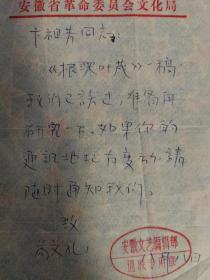 安徽省革命委员会文化局
卞祖芳同志：
《根深叶茂》一稿
我们已读过，准备再
研究一下。如果你的
通讯地址有变动，请
随时通知我们。
致
敬礼！
安徽文艺编辑部